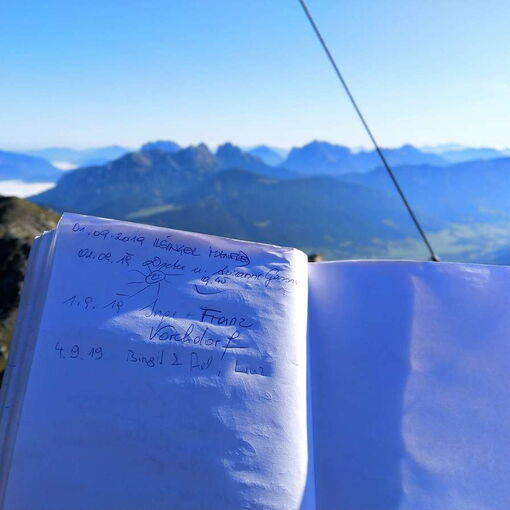 01.09.2019
01.09.19 Dieter u.
9.40
1.9.19 Inge + Franz
Vorchdorf
4.9.19 Birgit & Adl, Linz